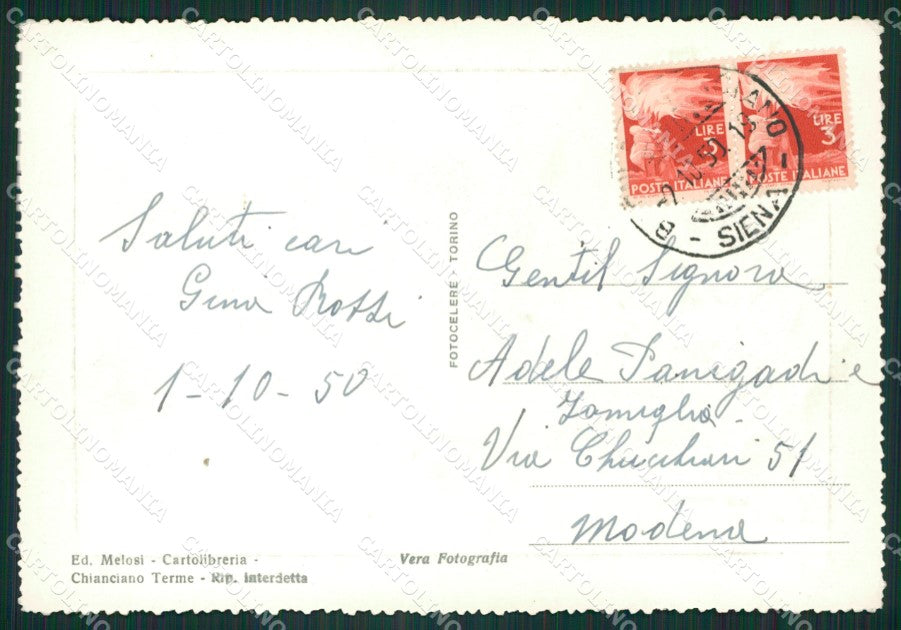 Saluti cari
Gina Rossi
1-10-50
FOTOCELERE - TORINO
LIRE 3
POSTE ITALIANE
LIRE 3
POSTE ITALIANE
SIENA
Gentil Signora
Adele Panigadi e
Famiglia
Via 51
Modena
Ed. Melosi - Cartolibreria -
Chianciano Terme - Rip. interdetta
Vera Fotografia
CARTOLINOMANIA